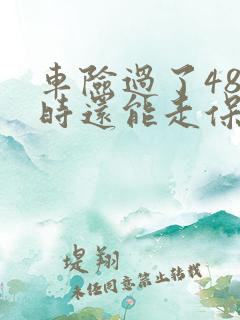 車險過了48
時還能走保
堤翔
未經同意禁止轉載